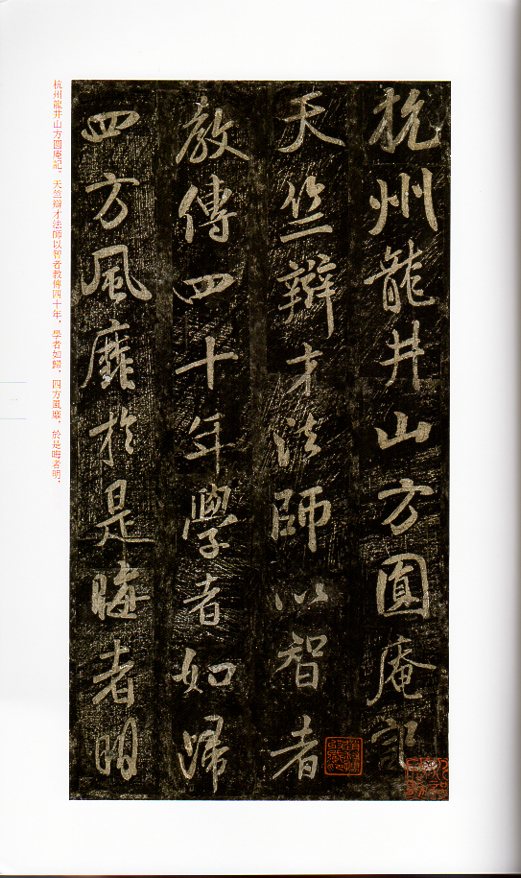 杭州龍井山方圓庵記
天竺辯才法師以智者
教傳四十年學者如歸
四方風靡於是晦者明
杭州龍井山方圓庵記。天竺辯才法師以智者教傳四十年，學者如歸，四方風靡，於是晦者明，